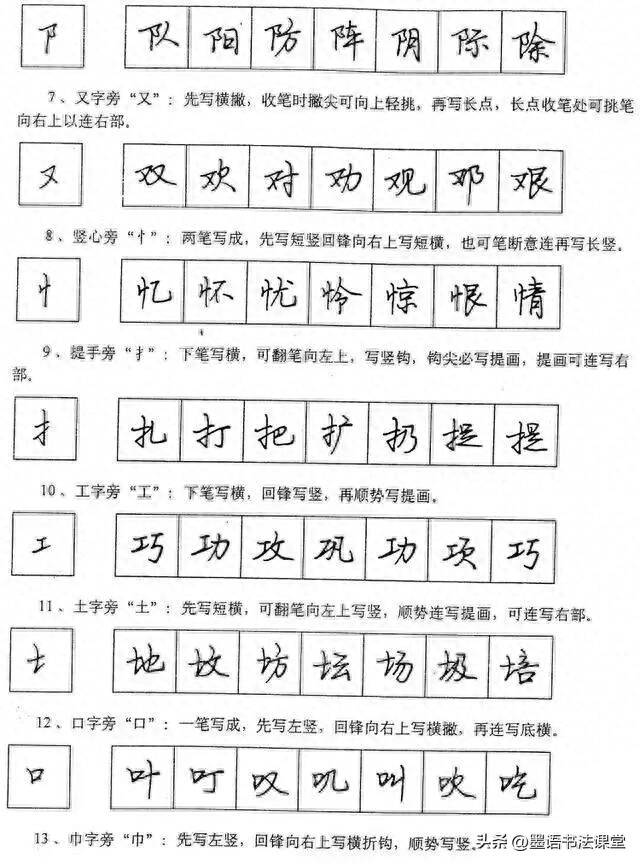 阝 队 阳 防 阵 阴 际 除
7、又字旁“又”：先写横撇，收笔时撇尖可向上轻挑，再写长点，长点收笔处可挑笔
向右上以连右部。
又 双 欢 对 劝 观 邓 艰
8、竖心旁“忄”：两笔写成，先写短竖回锋向右上写短横，也可笔断意连再写长竖。
忄 忆 怀 忧 怜 惊 恨 情
9、提手旁“扌”：下笔写横，可翻笔向左上，写竖钩，钩尖必写提画，提画可连写右
部。
扌 扎 打 把 扩 扔 提 提
10、工字旁“工”：下笔写横，回锋写竖，再顺势写提画。
工 巧 功 攻 巩 功 项 巧
11、土字旁“土”：先写短横，可翻笔向左上写竖，顺势连写提画，可连写右部。
土 地 坟 坊 坛 场 圾 培
12、口字旁“口”：一笔写成，先写左竖，回锋向右上写横撇，再连写底横。
口 叶 叮 叹 叽 叫 吹 吃
13、巾字旁“巾”：先写左竖，回锋向右上写横折钩，顺势写竖。
头条@墨语书法课堂